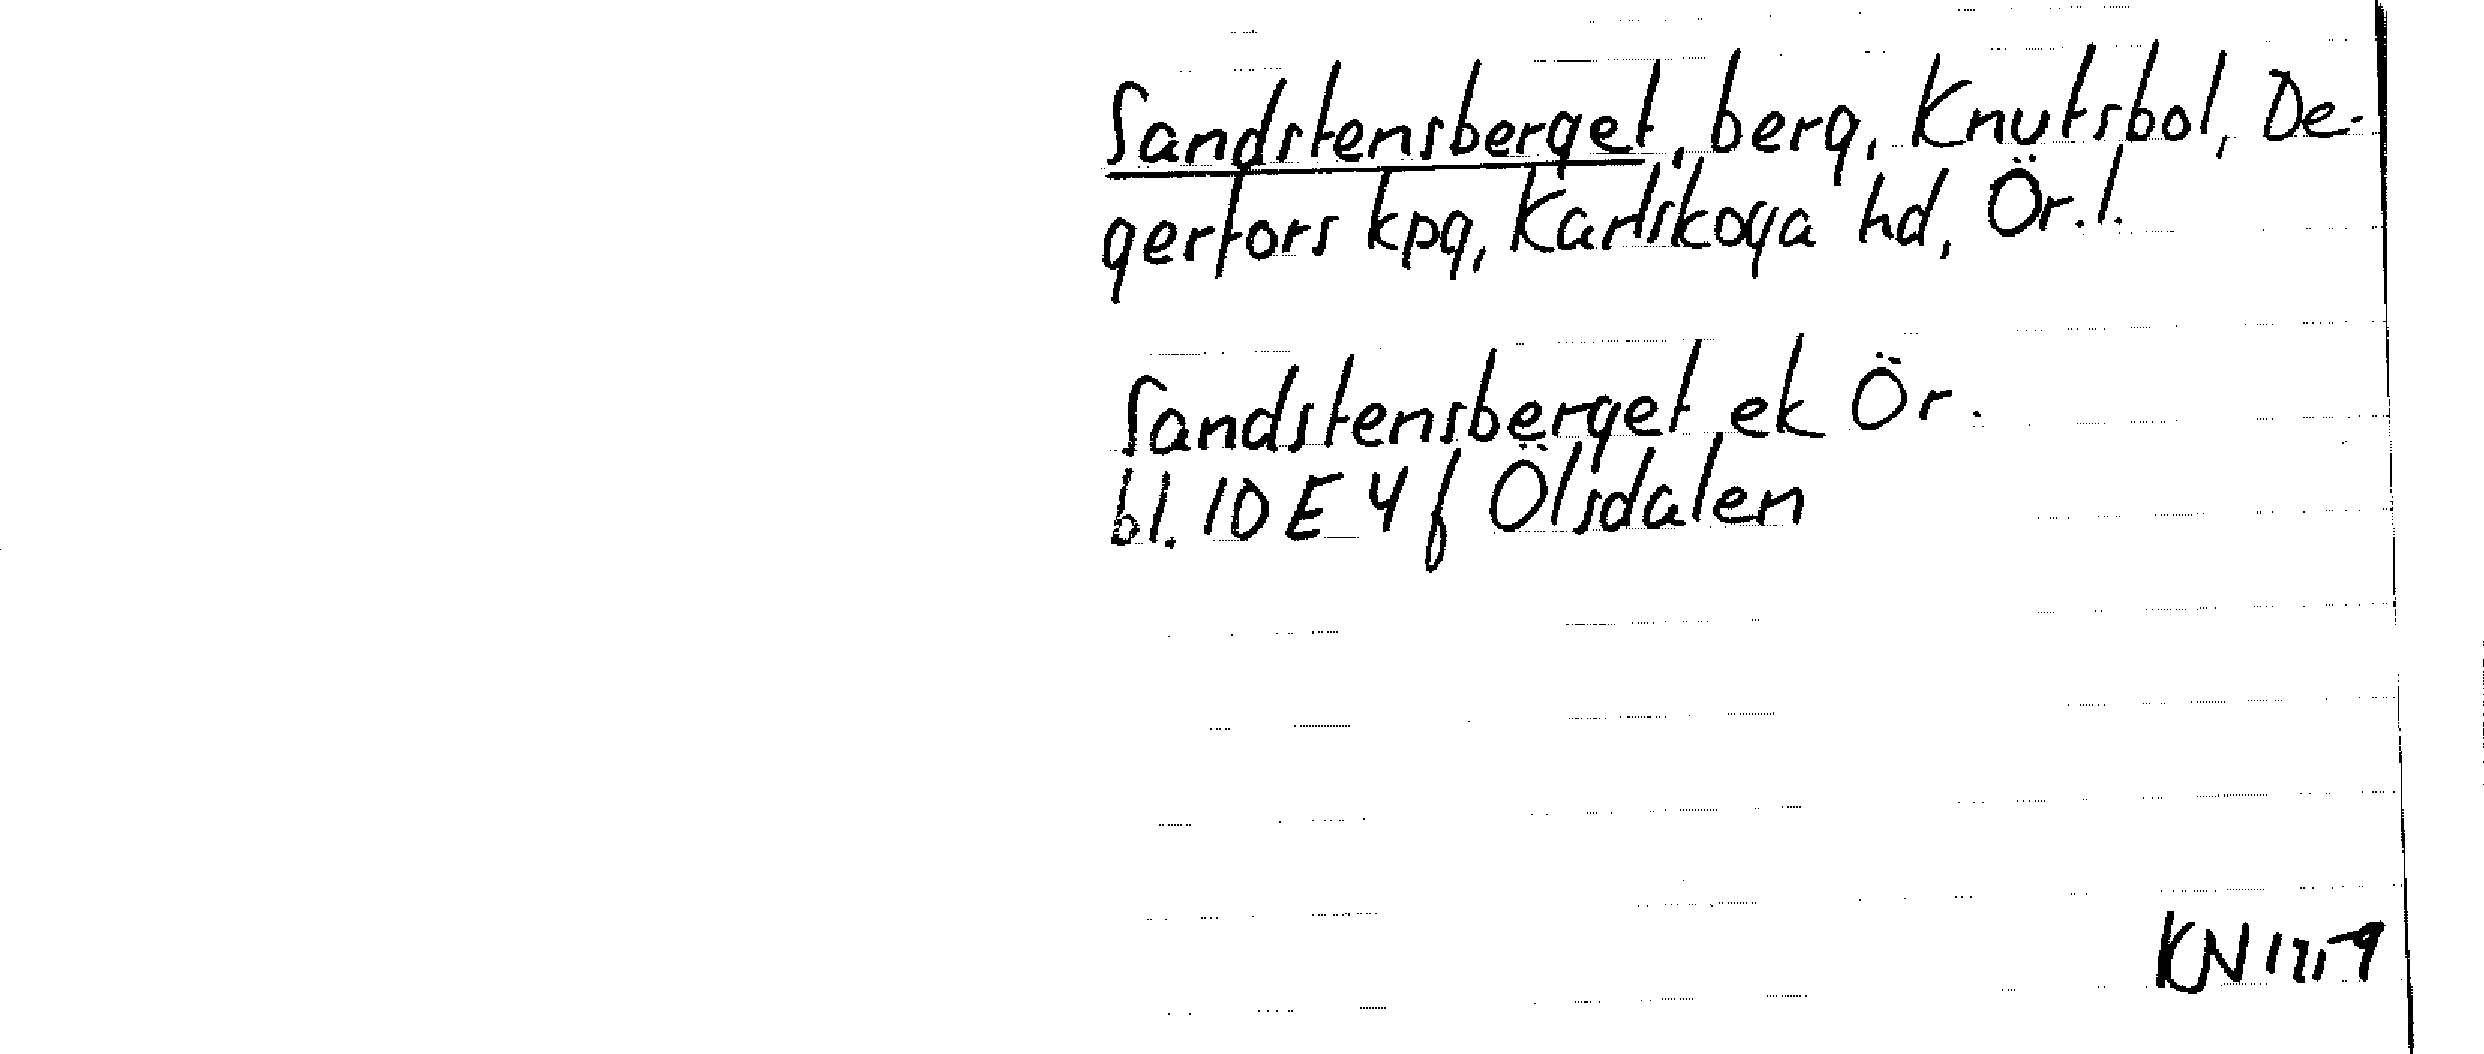 Sandstensberget, berg, Knutsbol, De-
gerfors kpg, Karlskoga hd, Ör. l.
Sandstensberget ek Ör.
bl. 10 E 4 f Ölsdalen
KN